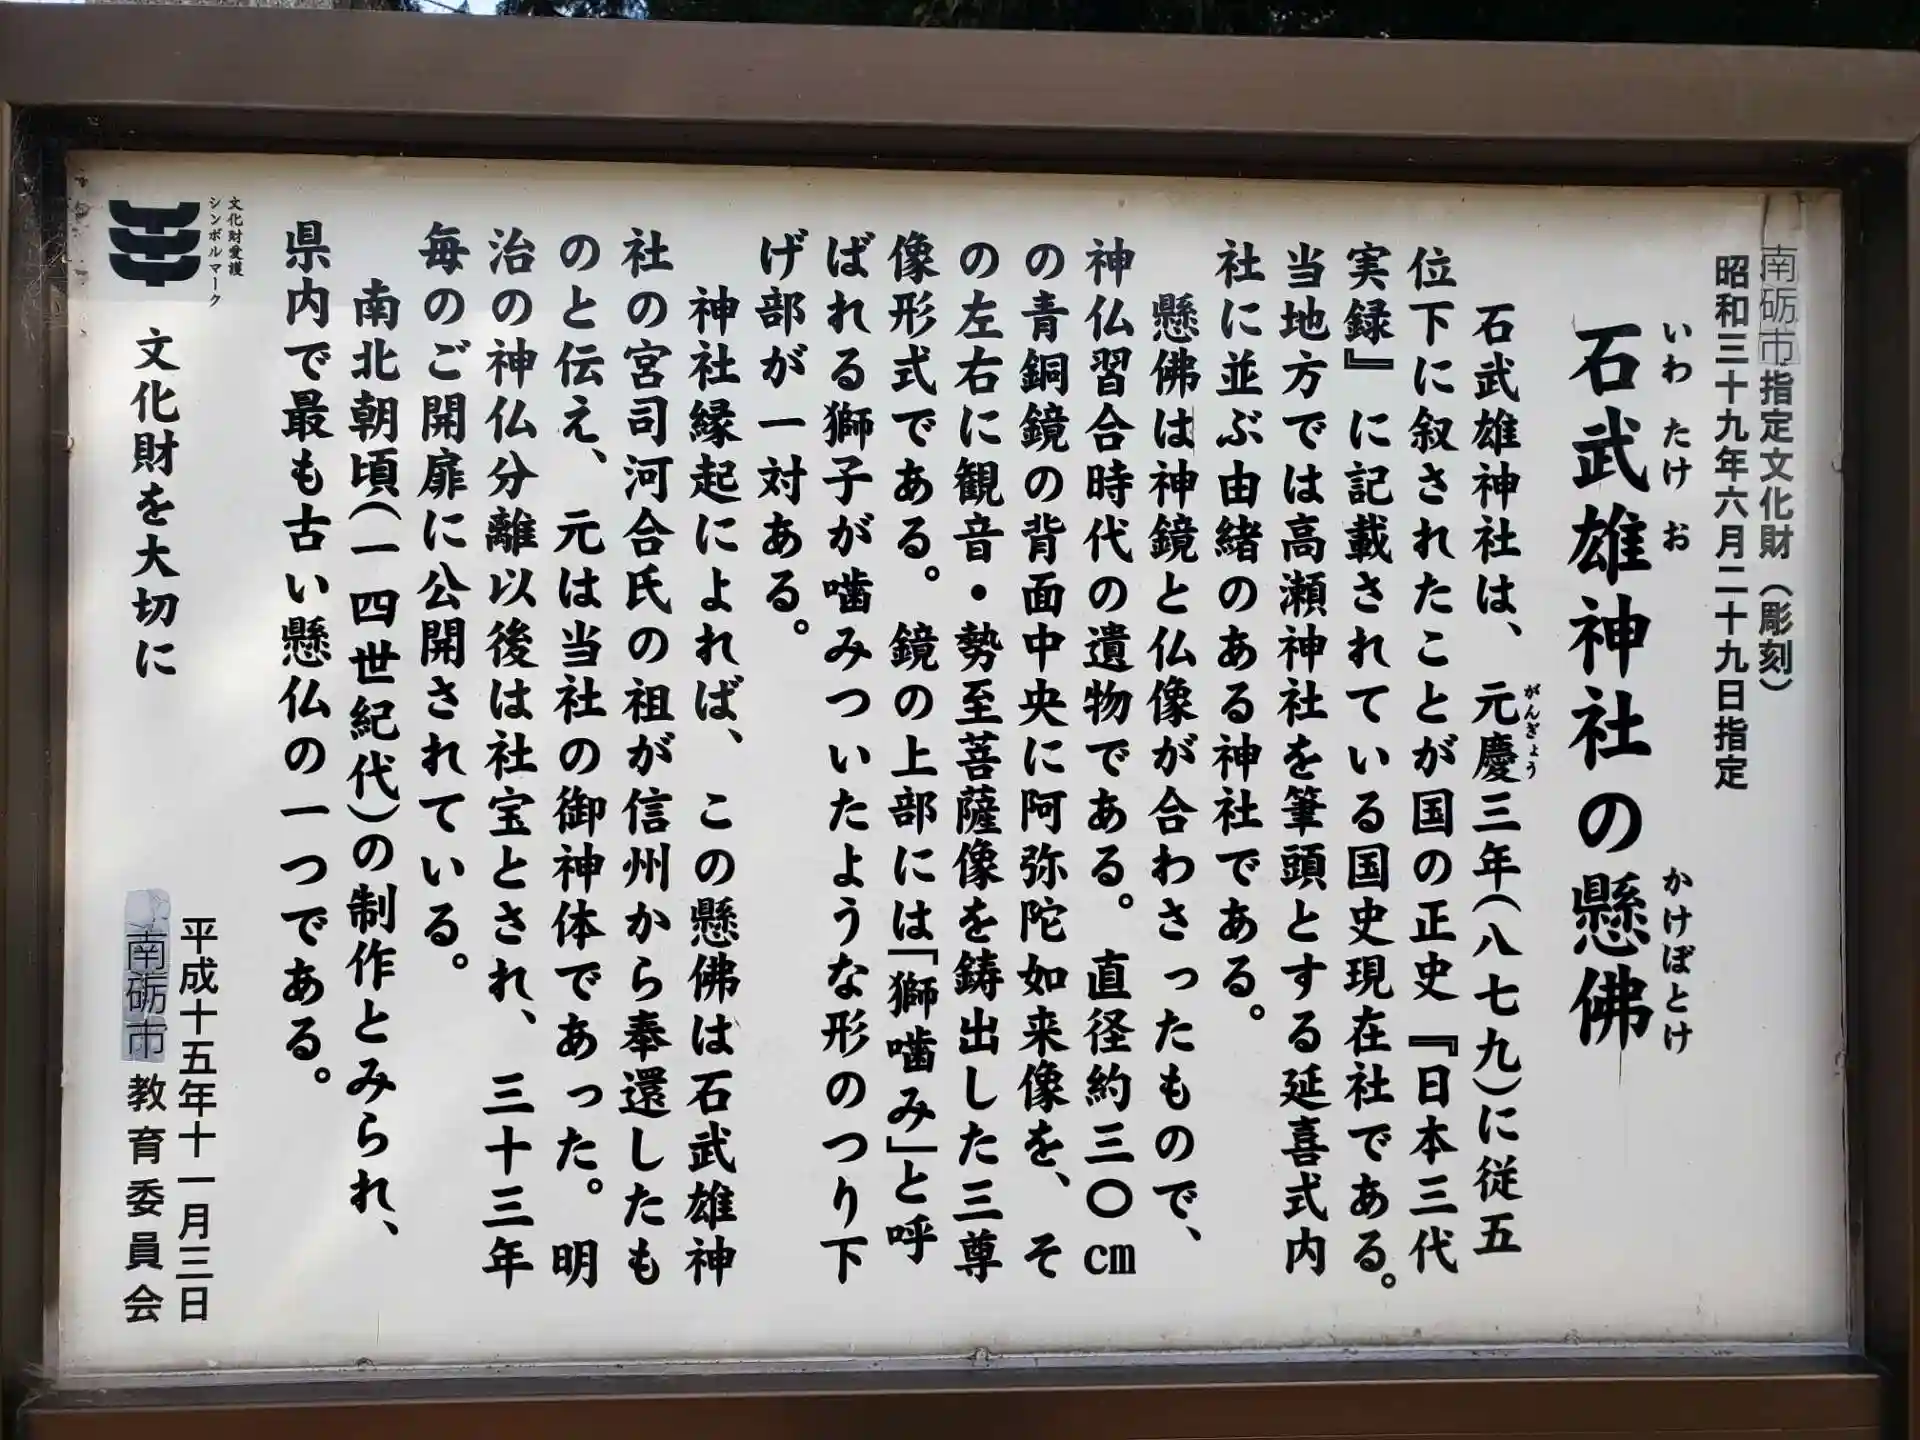 南砺市指定文化財（彫刻）
昭和三十九年六月二十九日指定
いわ たけ お かけぼとけ
石武雄神社の懸佛
がんぎょう
石武雄神社は、元慶三年(八七九)に従五
位下に叙されたことが国の正史『日本三代
実録』に記載されている国史現在社である。
当地方では高瀬神社を筆頭とする延喜式内
社に並ぶ由緒のある神社である。
懸佛は神鏡と仏像が合わさったもので、
神仏習合時代の遺物である。直径約三〇cm
の青銅鏡の背面中央に阿弥陀如来像を、そ
の左右に観音・勢至菩薩像を鋳出した三尊
像形式である。鏡の上部には「獅噛み」と呼
ばれる獅子が噛みついたような形のつり下
げ部が一対ある。
神社縁起によれば、この懸佛は石武雄神
社の宮司河合氏の祖が信州から奉還したも
のと伝え、元は当社の御神体であった。明
治の神仏分離以後は社宝とされ、三十三年
毎のご開扉に公開されている。
南北朝頃(一四世紀代)の制作とみられ、
県内で最も古い懸仏の一つである。
文化財愛護
シンボルマーク
文化財を大切に
平成十五年十一月三日
南砺市教育委員会